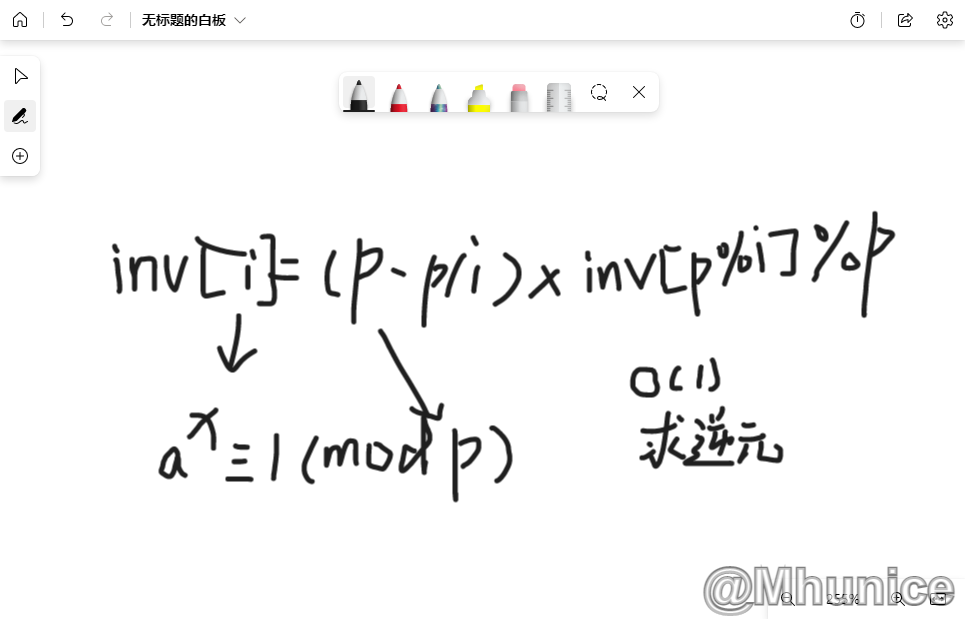 无标题的白板
inv[i]=(p-p/i)×inv[p%i]%p
O(1)
a^x≡1(mod p)
求逆元
@Mhunice
255%